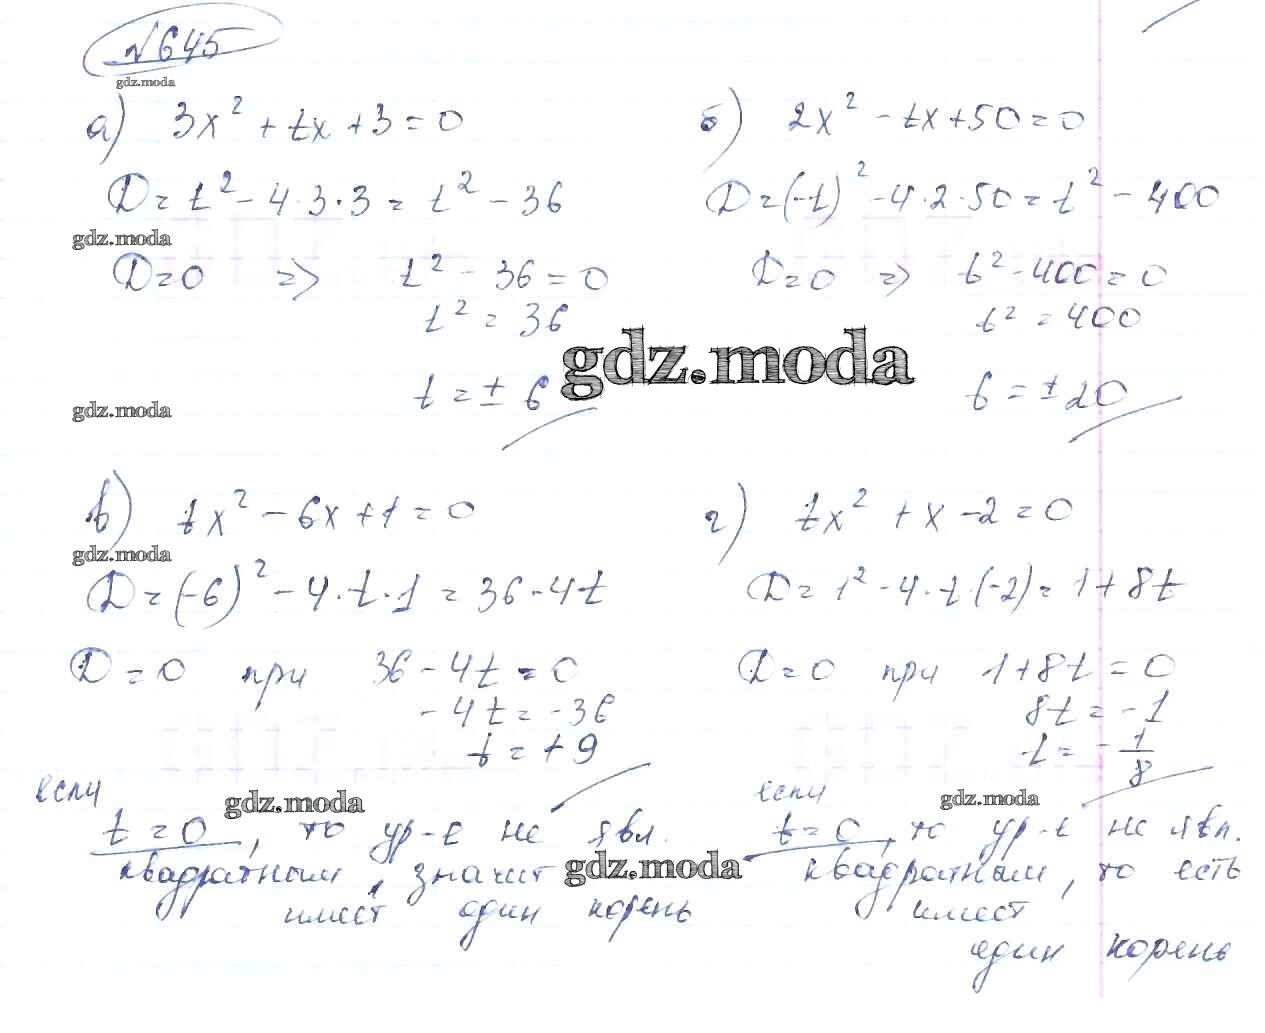 №645
gdz.moda
а) 3x² + tx + 3 = 0
D = t² - 4·3·3 = t² - 36
gdz.moda
D = 0 => t² - 36 = 0
t² = 36
t = ± 6
gdz.moda
б) 2x² - tx + 50 = 0
D = (-t)² - 4·2·50 = t² - 400
D = 0 => t² - 400 = 0
t² = 400
t = ± 20
gdz.moda
в) tx² - 6x + 1 = 0
gdz.moda
D = (-6)² - 4·t·1 = 36 - 4t
D = 0 при 36 - 4t = 0
- 4t = - 36
t = + 9
если
gdz.moda
t = 0, то ур-е не явл.
квадратным, значит
gdz.moda
имеет один корень
г) tx² + x - 2 = 0
D = 1² - 4·t·(-2) = 1 + 8t
D = 0 при 1 + 8t = 0
8t = - 1
t = - 1/8
если
gdz.moda
t = 0, то ур-е не явл.
квадратным, то есть
имеет
один корень